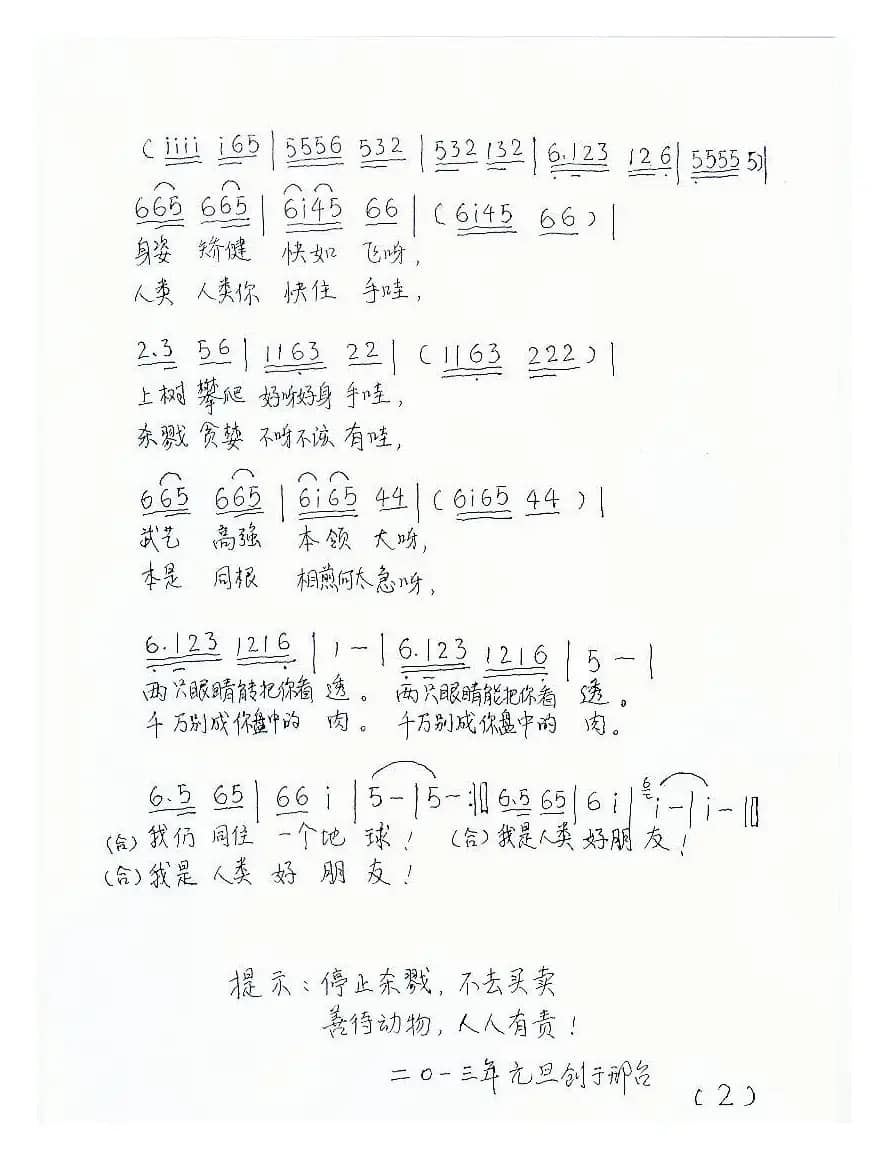 ( i i i i i 6 5 | 5 5 5 6 5 3 2 | 5 3 2 1 3 2 | 6. 1 2 3 1 2 6 | 5 5 5 5 5 ) |
6 6 5 6 6 5 | 6 i 4 5 6 6 | ( 6 i 4 5 6 6 ) |
身姿 矫健 快如 飞呀,
人类 人类你 快住 手哇,
2. 3 5 6 | 1 1 6 3 2 2 | ( 1 1 6 3 2 2 2 ) |
上树 攀爬 好呀好身 手哇,
杀戮 贪婪 不呀不该 有哇,
6 6 5 6 6 5 | 6 i 6 5 4 4 | ( 6 i 6 5 4 4 ) |
武艺 高强 本领 大呀,
本是 同根 相煎何太急呀,
6. 1 2 3 1 2 1 6 | 1 — | 6. 1 2 3 1 2 1 6 | 5 — |
两只眼睛能把你看 透。 两只眼睛能把你看 透。
千万别成你盘中的 肉。 千万别成你盘中的 肉。
6. 5 6 5 | 6 6 i | 5 — | 5 — :‖ 6. 5 6 5 | 6 i | 6 i — | i — ‖
(合) 我们 同住 一个地 球! (合) 我是人类 好朋 友!
(合) 我是 人类 好 朋 友!
提示:停止杀戮,不去买卖
善待动物,人人有责!
二0一三年元旦创于邢台
(2)